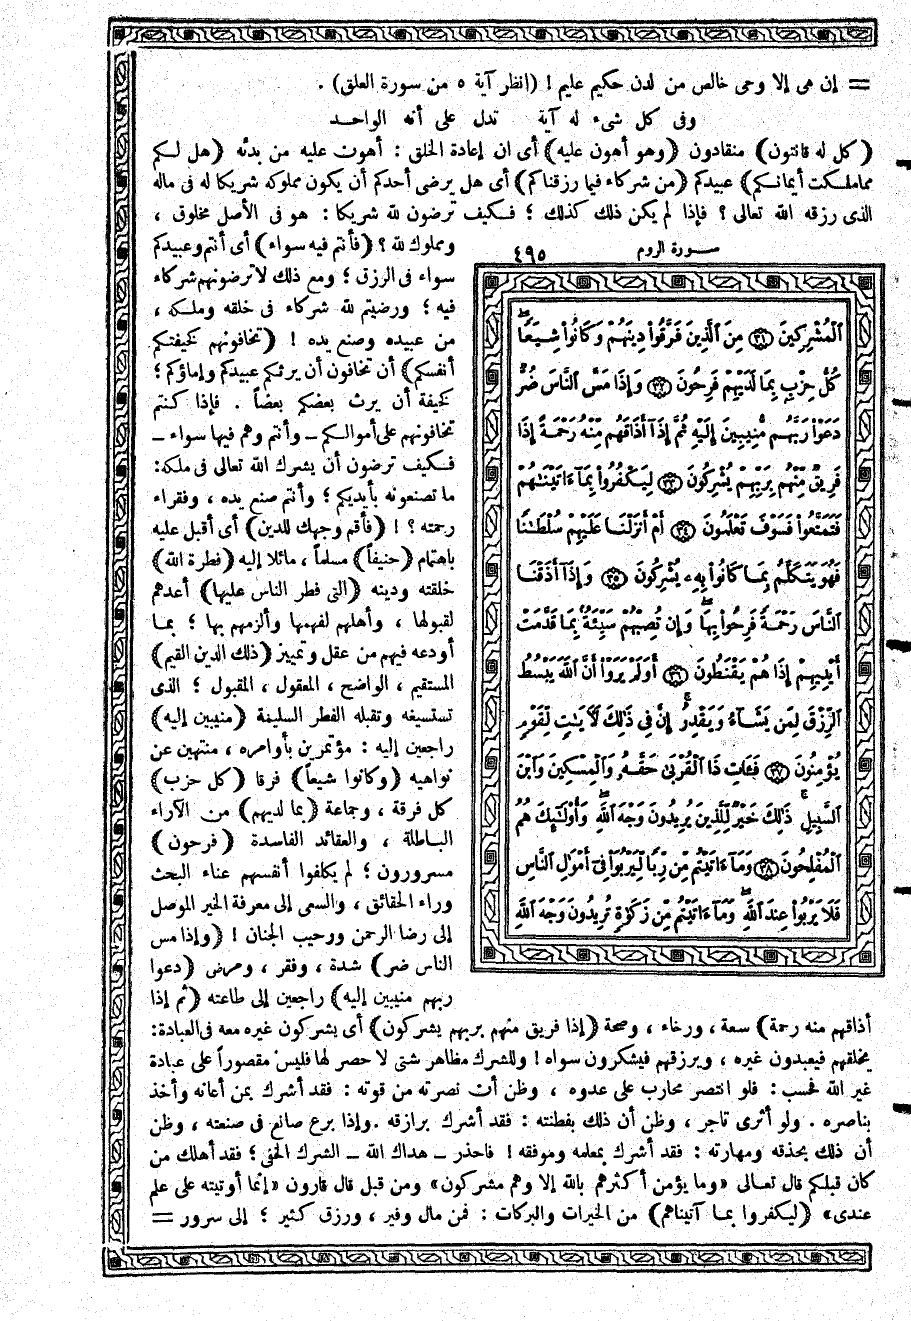 = إن هى إلا وحى خالص من لدن حكيم عليم ! (انظر آية ٥ من سورة العلق) .
وفى كل شىء له آية تدل على أنه الواحد
(كل له قانتون) منقادون (وهو أهون عليه) أى ان إعادة الخلق : أهون عليه من بدئه (هل لكم
مما ملكت أيمانكم) عبيدكم (من شركاء فيما رزقناكم) أى هل يرضى أحدكم أن يكون مملوكه شريكا له فى ماله
الذى رزقه الله تعالى ؟ فإذا لم يكن ذلك كذلك ؛ فكيف ترضون لله شريكا : هو فى الأصل مخلوق ،
ومملوك لله ؟ (فأنتم فيه سواء) أى أنتم وعبيدكم
سواء فى الرزق ؛ ومع ذلك لا ترضونهم شركاء
فيه ؛ ورضيتم لله شركاء فى خلقه وملكه ،
من عبيده وصنع يده ! (تخافونهم كخيفتكم
أنفسكم) أن تخافون أن يرثكم عبيدكم وإماؤكم ؛
كخيفة أن يرث بعضكم بعضاً . فإذا كنتم
تخافونهم على أموالكم – وأنتم وهم فيها سواء –
فكيف ترضون أن يشرك الله تعالى فى ملكه :
ما تصنعونه بأيديكم ؛ وأنتم صنع يده ، وفقراء
رحمته ؟ ! (فأقم وجهك للدين) أى أقبل عليه
باهتمام (حنيفاً) مسلماً ، مائلا إليه (فطرة الله)
خلقته ودينه (التى فطر الناس عليها) أعدهم
لقبولها ، وأهلهم لفهمها وألزمهم بها ؛ بما
أودعه فيهم من عقل وتمييز (ذلك الدين القيم)
المستقيم ، الواضح ، المعقول ، المقبول ؛ الذى
تستسيغه وتقبله الفطر السليمة (منيبين إليه)
راجعين إليه : مؤتمرين بأوامره ، منتهين عن
نواهيه (وكانوا شيعاً) فرقا (كل حزب)
كل فرقة ، وجماعة (بما لديهم) من الآراء
الباطلة ، والعقائد الفاسدة (فرحون)
مسرورون ؛ لم يكلفوا أنفسهم عناء البحث
وراء الحقائق ، والسعى إلى معرفة الخير الموصل
إلى رضا الرحمن ورحيب الجنان ! (وإذا مس
الناس ضر) شدة ، وفقر ، ومرض (دعوا
ربهم منيبين إليه) راجعين إلى طاعته (ثم إذا
سورة الروم ٤٩٥
ٱلْمُشْرِكِينَ ٣١ مِنَ ٱلَّذِينَ فَرَّقُوا۟ دِينَهُمْ وَكَانُوا۟ شِيَعًا ۖ
كُلُّ حِزْبٍ بِمَا لَدَيْهِمْ فَرِحُونَ ٣٢ وَإِذَا مَسَّ ٱلنَّاسَ ضُرٌّ
دَعَوْا۟ رَبَّهُم مُّنِيبِينَ إِلَيْهِ ثُمَّ إِذَآ أَذَاقَهُم مِّنْهُ رَحْمَةً إِذَا
فَرِيقٌ مِّنْهُم بِرَبِّهِمْ يُشْرِكُونَ ٣٣ لِيَكْفُرُوا۟ بِمَآ ءَاتَيْنَـٰهُمْ
فَتَمَتَّعُوا۟ فَسَوْفَ تَعْلَمُونَ ٣٤ أَمْ أَنزَلْنَا عَلَيْهِمْ سُلْطَـٰنًا
فَهُوَ يَتَكَلَّمُ بِمَا كَانُوا۟ بِهِۦ يُشْرِكُونَ ٣٥ وَإِذَآ أَذَقْنَا
ٱلنَّاسَ رَحْمَةً فَرِحُوا۟ بِهَا ۖ وَإِن تُصِبْهُمْ سَيِّئَةٌۢ بِمَا قَدَّمَتْ
أَيْدِيهِمْ إِذَا هُمْ يَقْنَطُونَ ٣٦ أَوَلَمْ يَرَوْا۟ أَنَّ ٱللَّهَ يَبْسُطُ
ٱلرِّزْقَ لِمَن يَشَآءُ وَيَقْدِرُ ۚ إِنَّ فِى ذَٰلِكَ لَـَٔايَـٰتٍ لِّقَوْمٍ
يُؤْمِنُونَ ٣٧ فَـَٔاتِ ذَا ٱلْقُرْبَىٰ حَقَّهُۥ وَٱلْمِسْكِينَ وَٱبْنَ
ٱلسَّبِيلِ ۚ ذَٰلِكَ خَيْرٌ لِّلَّذِينَ يُرِيدُونَ وَجْهَ ٱللَّهِ ۖ وَأُو۟لَـٰٓئِكَ هُمُ
ٱلْمُفْلِحُونَ ٣٨ وَمَآ ءَاتَيْتُم مِّن رِّبًا لِّيَرْبُوَا۟ فِىٓ أَمْوَٰلِ ٱلنَّاسِ
فَلَا يَرْبُوا۟ عِندَ ٱللَّهِ ۖ وَمَآ ءَاتَيْتُم مِّن زَكَوٰةٍ تُرِيدُونَ وَجْهَ ٱللَّهِ
أذاقهم منه رحمة) سعة ، ورخاء ، وصحة (إذا فريق منهم بربهم يشركون) أى يشركون غيره معه فى العبادة :
يخلقهم فيعبدون غيره ، ويرزقهم فيشكرون سواه ! وللشرك مظاهر شتى لا حصر لها فليس مقصوراً على عبادة
غير الله فحسب : فلو انتصر محارب على عدوه ، وظن أن نصرته من قوته : فقد أشرك بمن أعانه وأخذ
بناصره . ولو أثرى تاجر ، وظن أن ذلك بفطنته : فقد أشرك برازقه . وإذا برع صانع فى صنعته ، وظن
أن ذلك بحذقه ومهارته : فقد أشرك بمعلمه وموفقه ! فاحذر – هداك الله – الشرك الخفى ؛ فقد أهلك من
كان قبلكم قال تعالى «وما يؤمن أكثرهم بالله إلا وهم مشركون» ومن قبل قال قارون «إنما أوتيته على علم
عندى» (ليكفروا بما آتيناهم) من الخيرات والبركات : فمن مال وفير ، ورزق كثير ؛ إلى سرور =